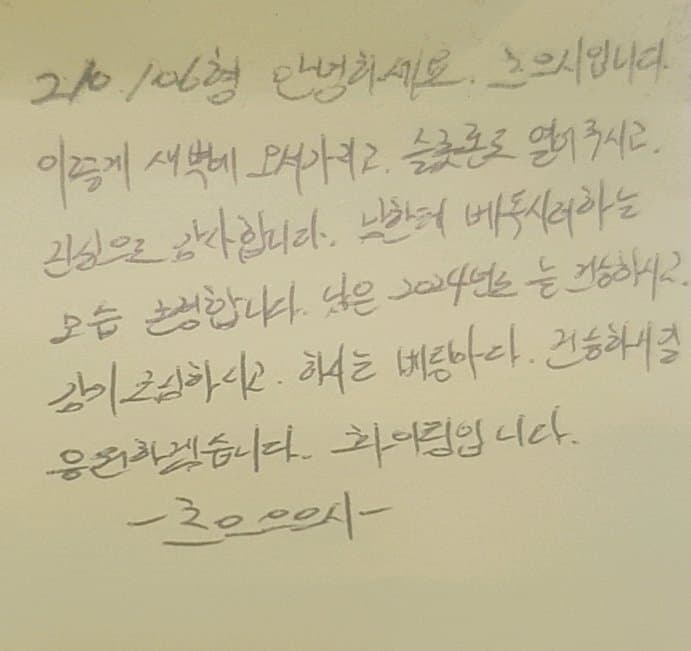 210./06형 안녕하세요. 초으시입니다.
이렇게 새벽에 오셔가지고. 슬롯론도 열어주시고.
진심으로 감사합니다. 남한테 베푸시려하는
모습 존경합니다. 남은 2024년도 는 건승하시고.
감기조심하시고. 하시는 베팅마다. 건승하시길
응원하겠습니다. 화이팅입니다.
-초으으으시-